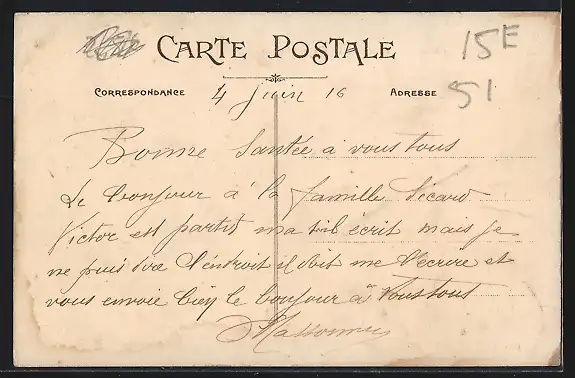 CARTE POSTALE
15E
51
CORRESPONDANCE
4 juin 16
ADRESSE
Bonne Santée à vous tous
Le bonjour à la famille Sicard
Victor est partit ma til écrit mais je
ne puis dire l'endroit il doit me récrire et
vous envoie bien le bonjour à vous tous